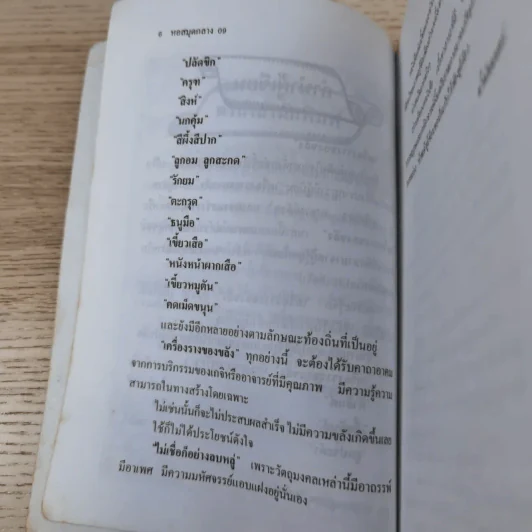 ๕ หอสมุดกลาง 09
"ปลัดขิก"
"ครุฑ"
"สิงห์"
"นกคุ้ม"
"สีผึ้งสีปาก"
"ลูกอม ลูกสะกด"
"รักยม"
"ตะกรุด"
"ธนูมือ"
"เขี้ยวเสือ"
"หนังหน้าผากเสือ"
"เขี้ยวหมูตัน"
"คดเม็ดขนุน"
และยังมีอีกหลายอย่างตามลักษณะท้องถิ่นที่เป็นอยู่
"เครื่องรางของขลัง" ทุกอย่างนี้ จะต้องได้รับคาถาอาคม
จากการบริกรรมของเกจิหรืออาจารย์ที่มีคุณภาพ มีความรู้ความ
สามารถในทางสร้างโดยเฉพาะ
ไม่เช่นนั้นก็จะไม่ประสบผลสำเร็จ ไม่มีความขลังเกิดขึ้นเลย
ใช้ก็ไม่ได้ประโยชน์ดังใจ
"ไม่เชื่อก็อย่างลบหลู่" เพราะวัตถุมงคลเหล่านี้มีอาถรรพ์
มีอาเพศ มีความมหัศจรรย์แอบแฝงอยู่นั่นเอง